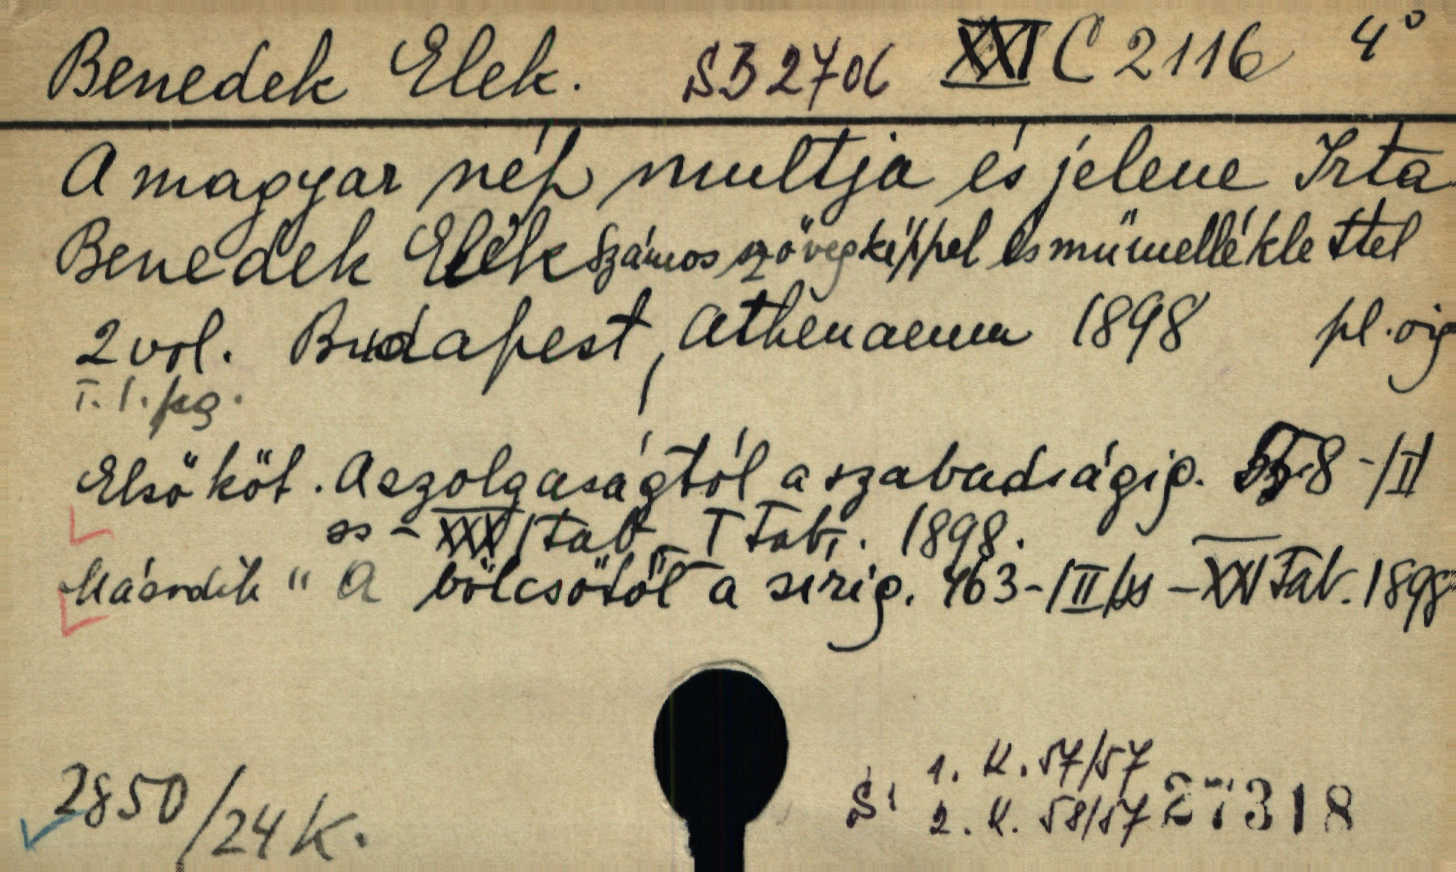 Benedek Elek. SB 2706 XXI C 2116 4°
A magyar nép multja és jelene Irta
Benedek Elek Számos szövegképpel és műmelléklettel
2 vol. Budapest, Athenaeum 1898 pl. oig
I. 1. pg.
Első köt. A szolgaságtól a szabadságig. 8-/II
ss - XXX/tab I Tab. 1898.
Második " A bölcsőtől a sirig. 463-/II/ss - XXI Tab. 1898
1. K. 57/57
2850/24 K. S: 2. K. 58/57 27318